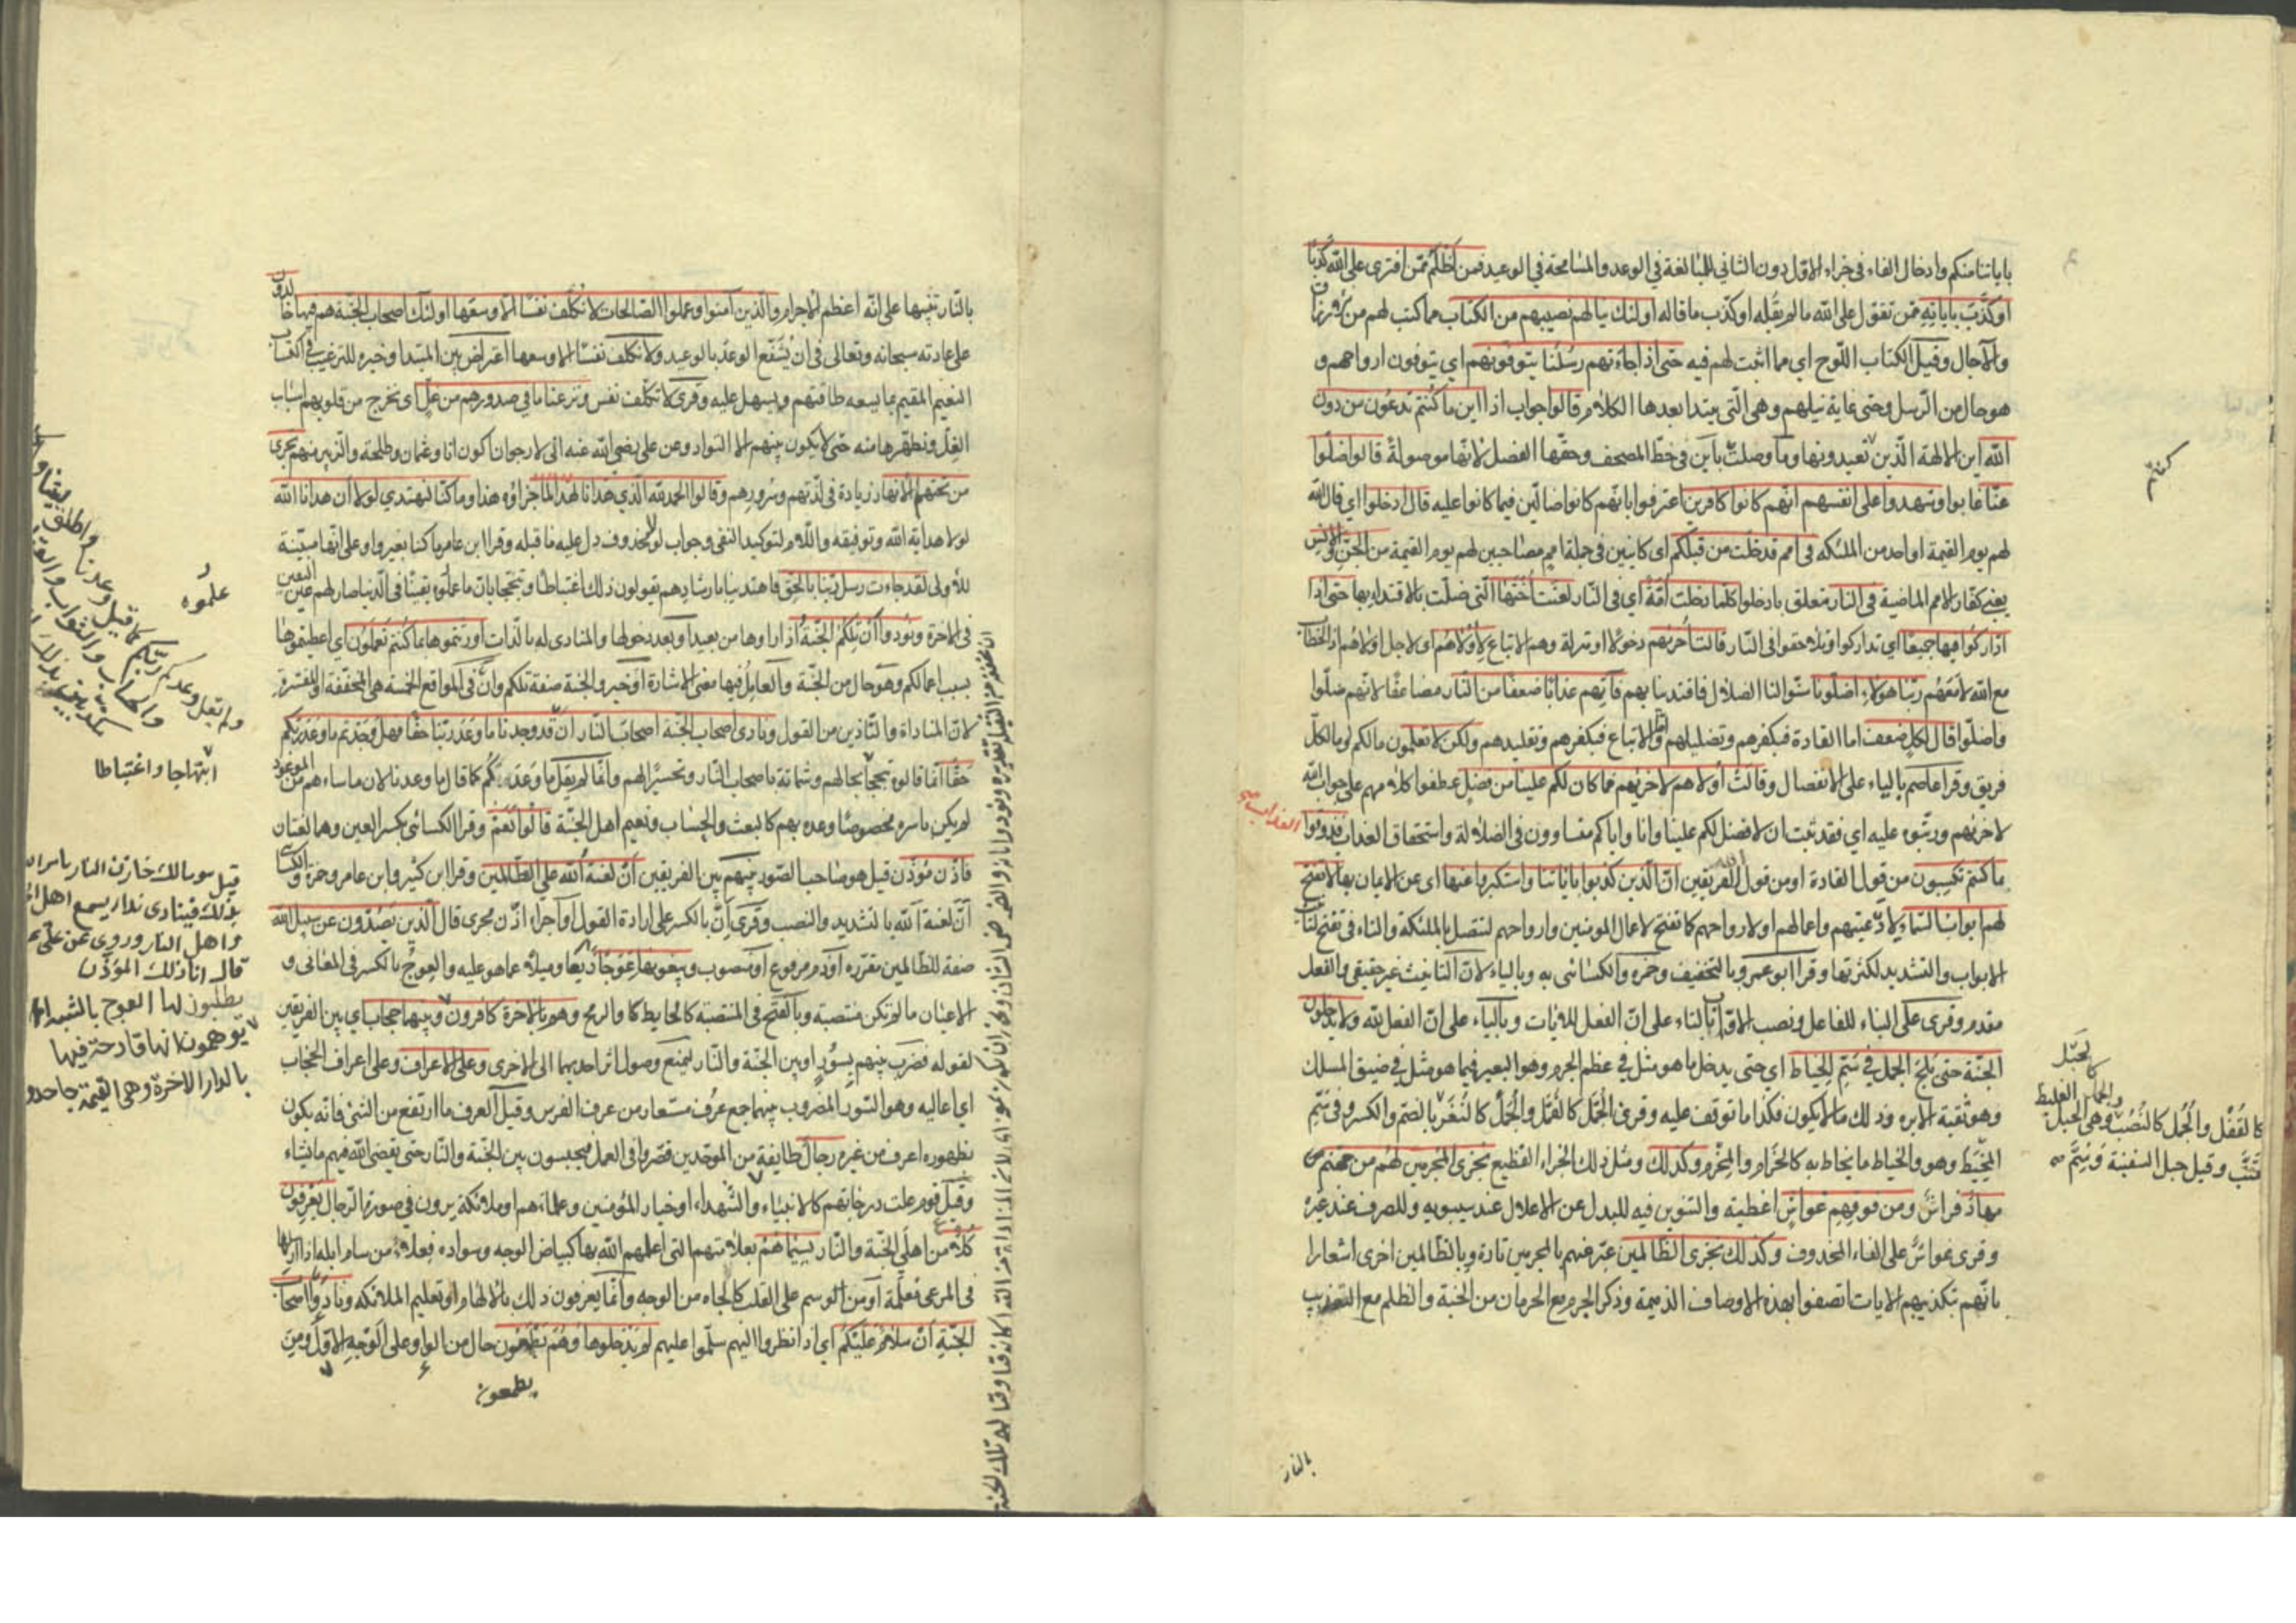 باياتنا منكم وادخال الفاء في خبر الاول دون الثاني للمبالغة في الوعد والمسامحة في الوعيد فمن اظلم ممن افترى على الله كذبا
او كذب باياته ممن تقول على الله ما لم يقله او كذب ما قاله اولئك ينالهم نصيبهم من الكتاب مما كتب لهم من الارزاق
والآجال وقيل الكتاب اللوح اي مما اثبت لهم فيه حتى اذا جاءتهم رسلنا يتوفونهم اي يتوفون ارواحهم و
هو حال من الرسل وحتى غاية نيلهم وهي التي يبتدا بعدها الكلام قالوا جواب اذا اين ما كنتم تدعون من دون
الله اين الالهة الذين تعبدونها وما وصلت باين في خط المصحف وحقها الفصل لانها موصولة قالوا ضلوا
عنا غابوا وشهدوا على انفسهم انهم كانوا كافرين اعترفوا بانهم كانوا ضالين فيما كانوا عليه قال ادخلوا اي قال الله
لهم يوم القيمة او احد من الملئكه في امم قد خلت من قبلكم اي كاينين في جملة امم مصاحبين لهم يوم القيمة من الجن والانس
يعني كفار الامم الماضية في النار متعلق بادخلوا كلما دخلت امة اي في النار لعنت اختها التي ضلت بالاقتداء بها حتى اذا
اداركوا فيها جميعا اي تداركوا وتلاحقوا في النار قالت اخريهم دخولا او منزلة وهم الاتباع لاوليهم اي لاجل اوليهم اذ الخطاب
مع الله لا معهم ربنا هولاء اضلونا سنوا لنا الضلال فاقتدينا بهم فآتهم عذابا ضعفا من النار مضاعفا لانهم ضلوا
واضلوا قال لكل ضعف اما القادة فبكفرهم وتضليلهم واما الاتباع فبكفرهم وتقليدهم ولكن لا تعلمون ما لكم او ما لكل
فريق وقرا عاصم بالياء على الانفصال وقالت اوليهم لاخريهم فما كان لكم علينا من فضل عطفوا كلامهم على جواب الله
لاخريهم ورتبوه عليه اي فقد ثبت ان لا فضل لكم علينا وانا واياكم متساوون في الضلالة واستحقاق العذاب فذوقوا
العذاب صح
ما كنتم تكسبون من قول القادة او من قول الفريقين ان الذين كذبوا باياتنا واستكبروا عنها اي عن الايمان بها لا تفتح
لهم ابواب السماء لادعيتهم واعمالهم او لارواحهم كما تفتح لاعمال المومنين وارواحهم لتتصل بالملئكة والتاء في تفتح لتانيث
الابواب والتشديد لكثرتها وقرا ابو عمرو بالتخفيف وحمزه والكسائي به وبالياء لان التانيث غير حقيقي والفعل
مقدم وقرى على البناء للفاعل ونصب الابواب بالتاء على ان الفعل للايات وبالياء على ان الفعل لله ولا يدخلون
الجنة حتى يلج الجمل في سم الخياط اي حتى يدخل ما هو مثل في عظم الجرم وهو البعير فيما هو مثل في ضيق المسلك
وهو ثقبة الابره وذلك ما لا يكون فكذا ما توقف عليه وقرى الجمل كالقمل والجمل كالنغر بالضم والكسر وفي سم
المخيط وهو والخياط ما يخاط به كالحزام والمحزم وكذلك ومثل ذلك الجزاء الفظيع نجزي المجرمين لهم من جهنم
مهاد فراش ومن فوقهم غواش اغطية والتنوين فيه للبدل عن الاعلال عند سيبويه وللصرف عند غيره
وقرى غواش على الغاء المحذوف وكذلك نجزي الظالمين عبر عنهم بالمجرمين تارة وبالظالمين اخرى اشعارا
بانهم بتكذيبهم الايات اتصفوا بهذه الاوصاف الذميمة وذكر الجرم مع الحرمان من الجنة والظلم مع التعذيب
كالحبل
كالقفل والجمل كالنصب وهي الحبل الغليظ
قنب وقيل حبل السفينة وسم
بالنار
بالنار تنبيها على انه اعظم الاجرام والذين آمنوا وعملوا الصالحات لا نكلف نفسا الا وسعها اولئك اصحاب الجنة هم فيها خالدون
على عادته سبحانه وتعالى في ان يشفع الوعد بالوعيد ولا نكلف نفسا الا وسعها اعتراض بين المبتدا وخبره للترغيب في اكتساب
النعيم المقيم بما يسعه طاقتهم ويسهل عليه وقرى لا تكلف نفس ونزعنا ما في صدورهم من غل اي نخرج من قلوبهم اسباب
الغل ونطهرها منه حتى لا يكون بينهم الا التواد وعن علي رضي الله عنه اني لارجو ان اكون انا وعثمان وطلحة والزبير منهم تجري
من تحتهم الانهار زيادة في لذتهم وسرورهم وقالوا الحمد لله الذي هدانا لهذا لما جزاؤه هذا وما كنا لنهتدي لولا ان هدانا الله
لولا هداية الله وتوفيقه واللام لتوكيد النفي وجواب لولا محذوف دل عليه ما قبله وقرا ابن عامر ما كنا بغير واو على انها مبينة
للاولى لقد جاءت رسل ربنا بالحق فاهتدينا بارشادهم يقولون ذلك اغتباطا وتبجحا بان ما علموه يقينا في الدنيا صار لهم عين اليقين
في الاخرة ونودوا ان تلكم الجنة اذا راوها من بعيد او بعد دخولها والمنادى له بالذات اورثتموها بما كنتم تعملون اي اعطيتموها
بسبب اعمالكم وهو حال من الجنة والعامل فيها معنى الاشارة او خبر والجنة صفة تلكم وان في المواقع الخمسة هي المخففة او المفسرة
لان المناداة والتاذين من القول ونادى اصحاب الجنة اصحاب النار ان قد وجدنا ما وعدنا ربنا حقا فهل وجدتم ما وعد ربكم
حقا انما قالوه تبجحا بحالهم وشماتة باصحاب النار وتحسيرا لهم وانما لم يقل ما وعدكم كما قال ما وعدنا لان ما ساءهم من الموعود
لم يكن باسره مخصوصا وعده بهم كالبعث والحساب ونعيم اهل الجنة قالوا نعم وقرا الكسائي بكسر العين وهما لغتان
فاذن مؤذن قيل هو صاحب الصور بينهم بين الفريقين ان لعنة الله على الظالمين وقرا ابن كثير وابن عامر وحمزة والكسائي
ان لعنة الله بالتشديد والنصب وقرى ان بالكسر على ارادة القول او اجراء اذن مجرى قال الذين يصدون عن سبيل الله
صفة للظالمين مقررة او ذم مرفوع او منصوب ويبغونها عوجا زيغا وميلا عما هو عليه والعوج بالكسر في المعاني و
الاعيان ما لم تكن منتصبة وبالفتح في المنتصبة كالحايط كا والرمح وهم بالاخرة كافرون وبينهما حجاب اي بين الفريقين
لقوله فضرب بينهم بسور او بين الجنة والنار ليمنع وصول اثر احديهما الى الاخرى وعلى الاعراف وعلى اعراف الحجاب
اي اعاليه وهو السور المضروب بينهما جمع عرف مستعار من عرف الفرس وقيل العرف ما ارتفع من الشئ فانه يكون
بظهوره اعرف من غيره رجال طايفة من الموحدين قصروا في العمل فيحبسون بين الجنة والنار حتى يقضي الله فيهم ما يشاء
وقيل قوم علت درجاتهم كالانبياء والشهداء او خيار المؤمنين وعلمائهم او ملائكة يرون في صورة الرجال يعرفون
كلا من اهل الجنة والنار بسيماهم بعلامتهم التي اعلمهم الله بها كبياض الوجه وسواده فعلا من سام ابله اذا ارسلها
في المرعى معلمة او من الوسم على القلب كالجاه من الوجه وانما يعرفون ذلك بالالهام او تعليم الملائكه ونادوا اصحاب
الجنة ان سلام عليكم اي اذا نظروا اليهم سلموا عليهم لم يدخلوها وهم يطمعون حال من الواو على الوجه الاول ومن
يطمعون
علموه
ابتهاجا واغتباطا
قيل هو مالك خازن النار يامر الله
بذلك فينادي نداء يسمع اهل الجنة
واهل النار وروي عن علي
قال انا ذلك المؤذن
يطلبون لها العوج بالشبه
يوهمون انها قادحة فيها
بالدار الاخرة وهي القيمة جاحدو